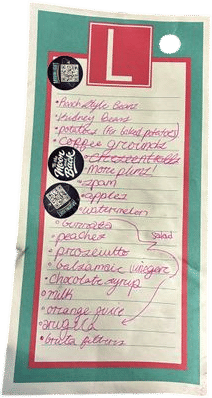 L
Ranch Style Beans
Kidney Beans
potatoes (for baked potatoes)
coffee grounds
crescent rolls
more plums!
spam
apples
watermelon
burrata
peaches
salad
prosciutto
balsamic vinegar
chocolate syrup
milk
orange juice
arugula
brita filters
Moon
Back